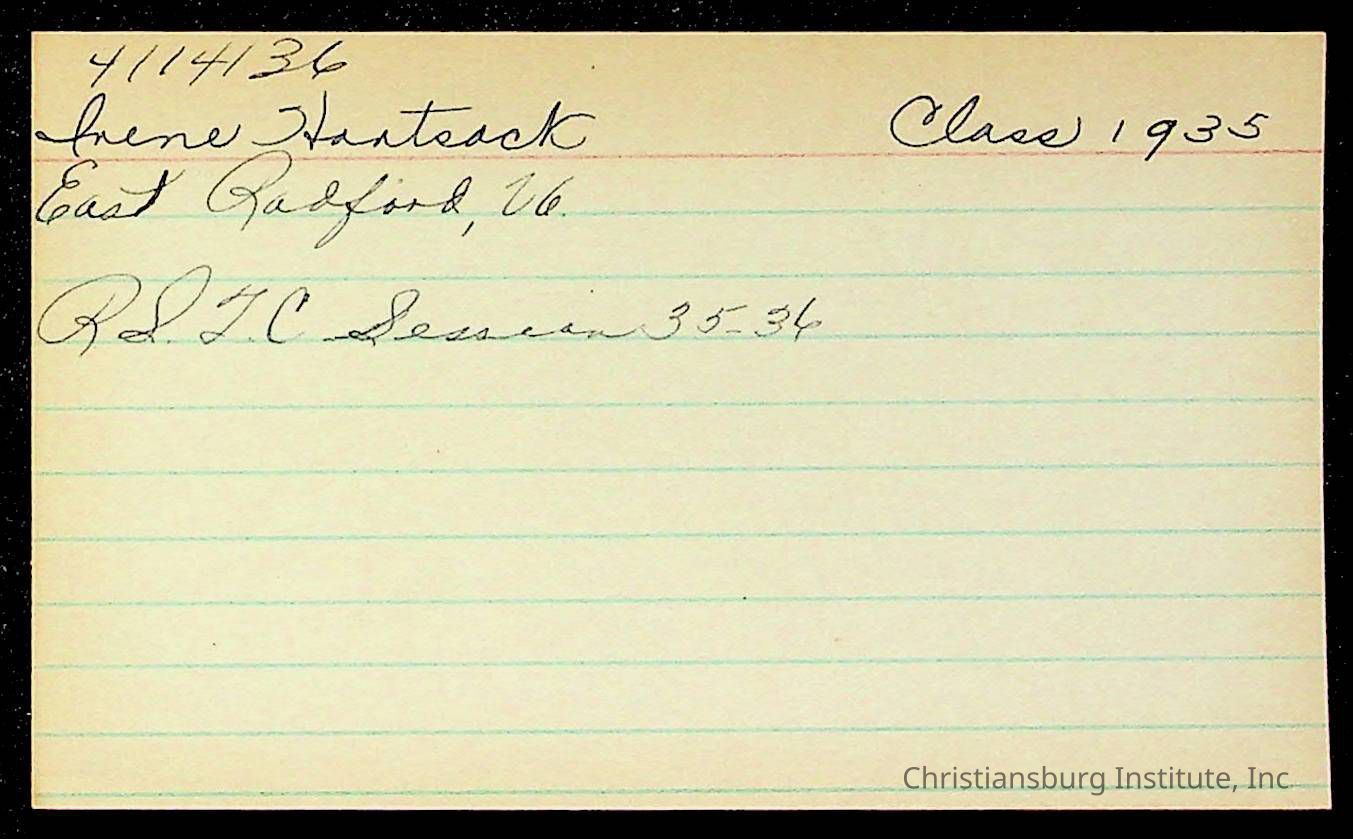 4114136
Irene Hartsock Class 1935
East Radford, Va.
R.S.T.C Session 35-36
Christiansburg Institute, Inc